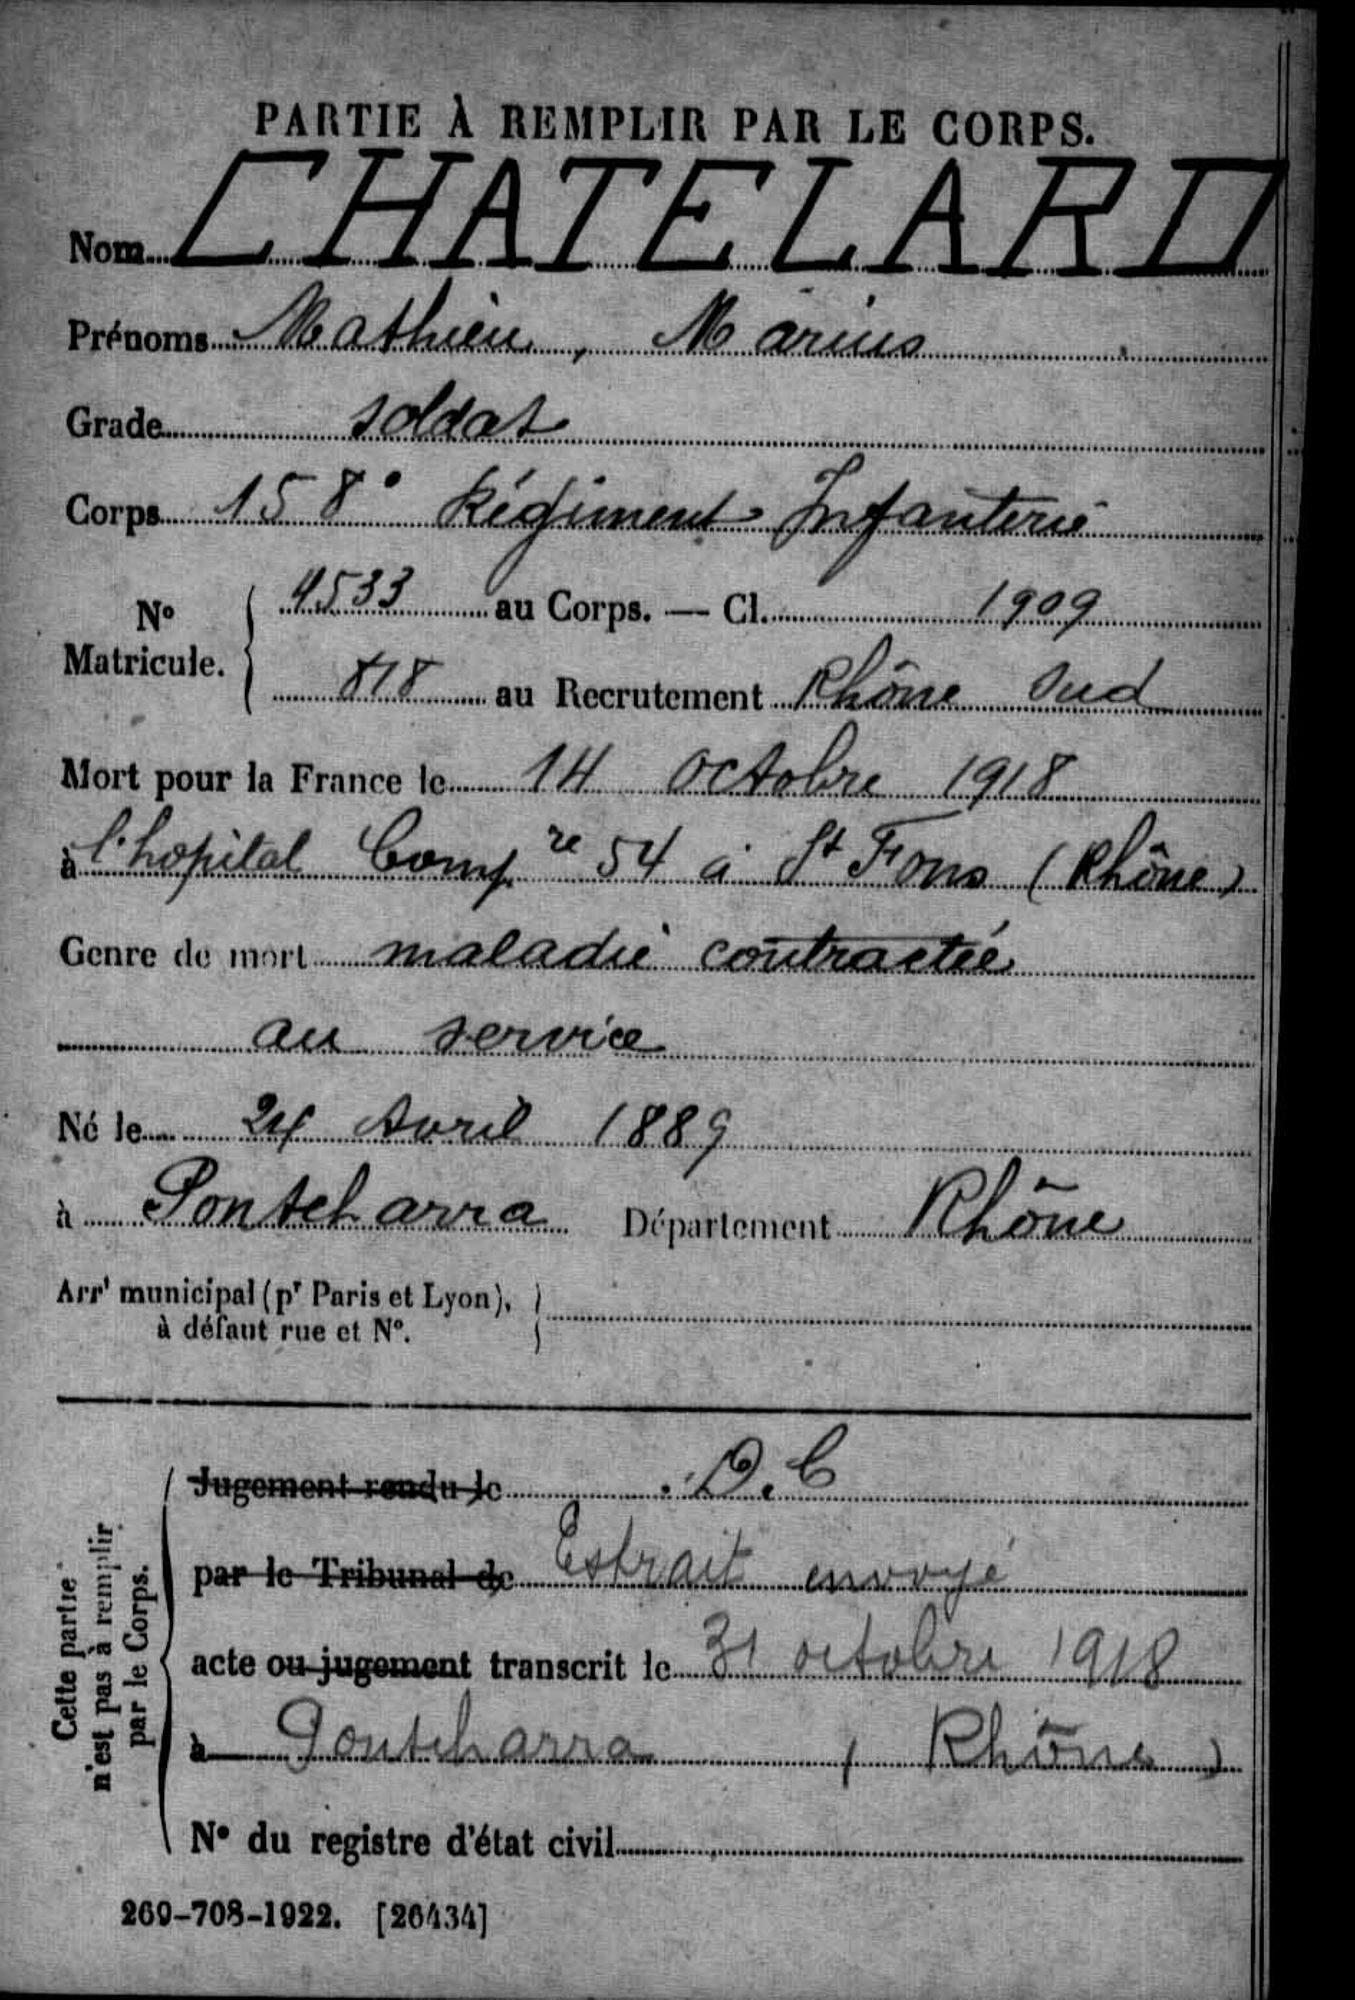 PARTIE À REMPLIR PAR LE CORPS.
Nom CHATELARD
Prénoms Mathieu, Marius
Grade soldat
Corps 158° Régiment Infanterie
N° Matricule. 4533 au Corps. — Cl. 1909
818 au Recrutement Rhône Sud
Mort pour la France le 14 octobre 1918
à l'hopital Comp.re 54 à St Fons (Rhône)
Genre de mort maladie contractée
au service
Né le 24 Avril 1889
à Pontcharra Département Rhône
Arrt municipal (pr Paris et Lyon),
à défaut rue et N°.
Cette partie
n'est pas à remplir
par le Corps.
Jugement rendu le D.C
par le Tribunal de Extrait envoyé
acte ou jugement transcrit le 31 octobre 1918
à Pontcharra (Rhône)
N° du registre d'état civil
269-708-1922. [26434]